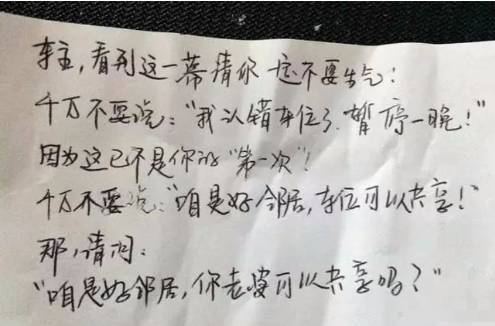 车主,看到这一幕请你一定不要生气!
千万不要说:"我认错车位了.暂停一晚!"
因为这已不是你的"第一次"!
千万不要说:"咱是好邻居,车位可以共享!"
那,请问:
"咱是好邻居,你老婆可以共享吗?"